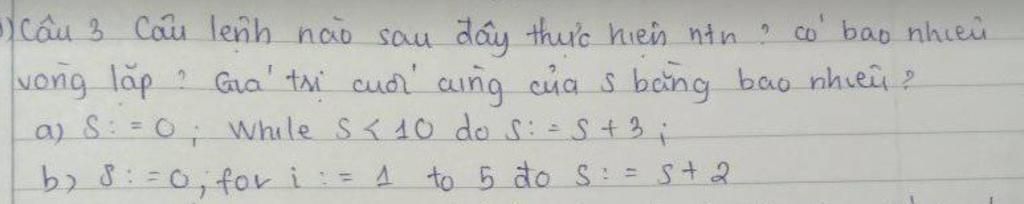 ) Câu 3 Câu lệnh nào sau đây thực hiện ntn ? có bao nhiêu
vòng lặp ? Giá trị cuối cùng của s bằng bao nhiêu ?
a) S : = 0 ; While S < 10 do S : = S + 3 ;
b) S : = 0 ; for i : = 1 to 5 do S : = S + 2